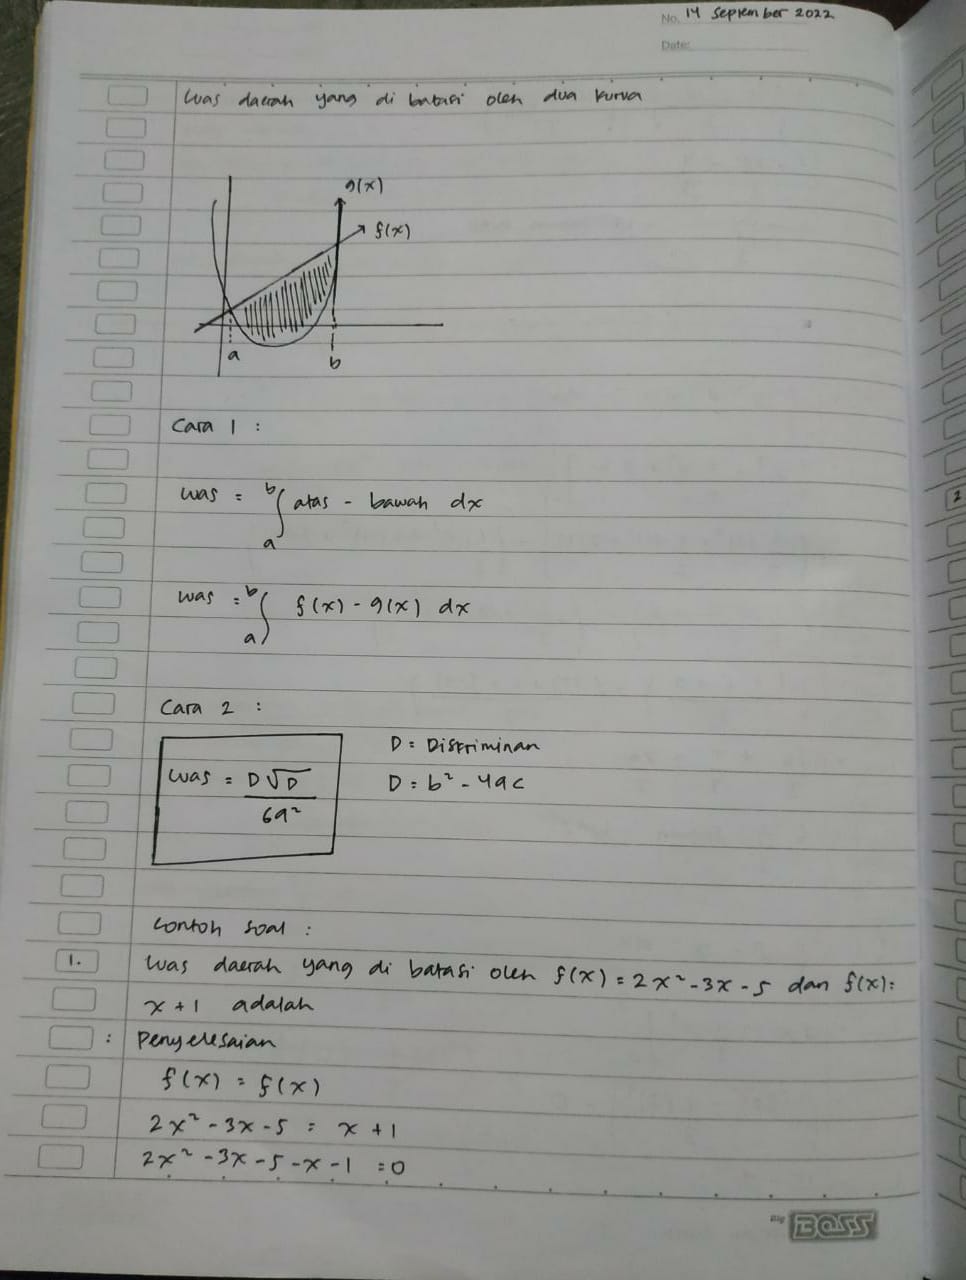 No. 14 September 2022
Date:
Luas daerah yang di batasi oleh dua kurva
g(x)
f(x)
a
b
Cara 1 :
Luas = b∫a atas - bawah dx
Luas = b∫a f(x) - g(x) dx
Cara 2 :
Luas = D√D / 6a²
D = Diskriminan
D = b² - 4ac
Contoh soal :
1. Luas daerah yang di batasi oleh f(x) = 2x² - 3x - 5 dan f(x) =
x + 1 adalah
: Penyelesaian
f(x) = f(x)
2x² - 3x - 5 = x + 1
2x² - 3x - 5 - x - 1 = 0
Big BOSS
2